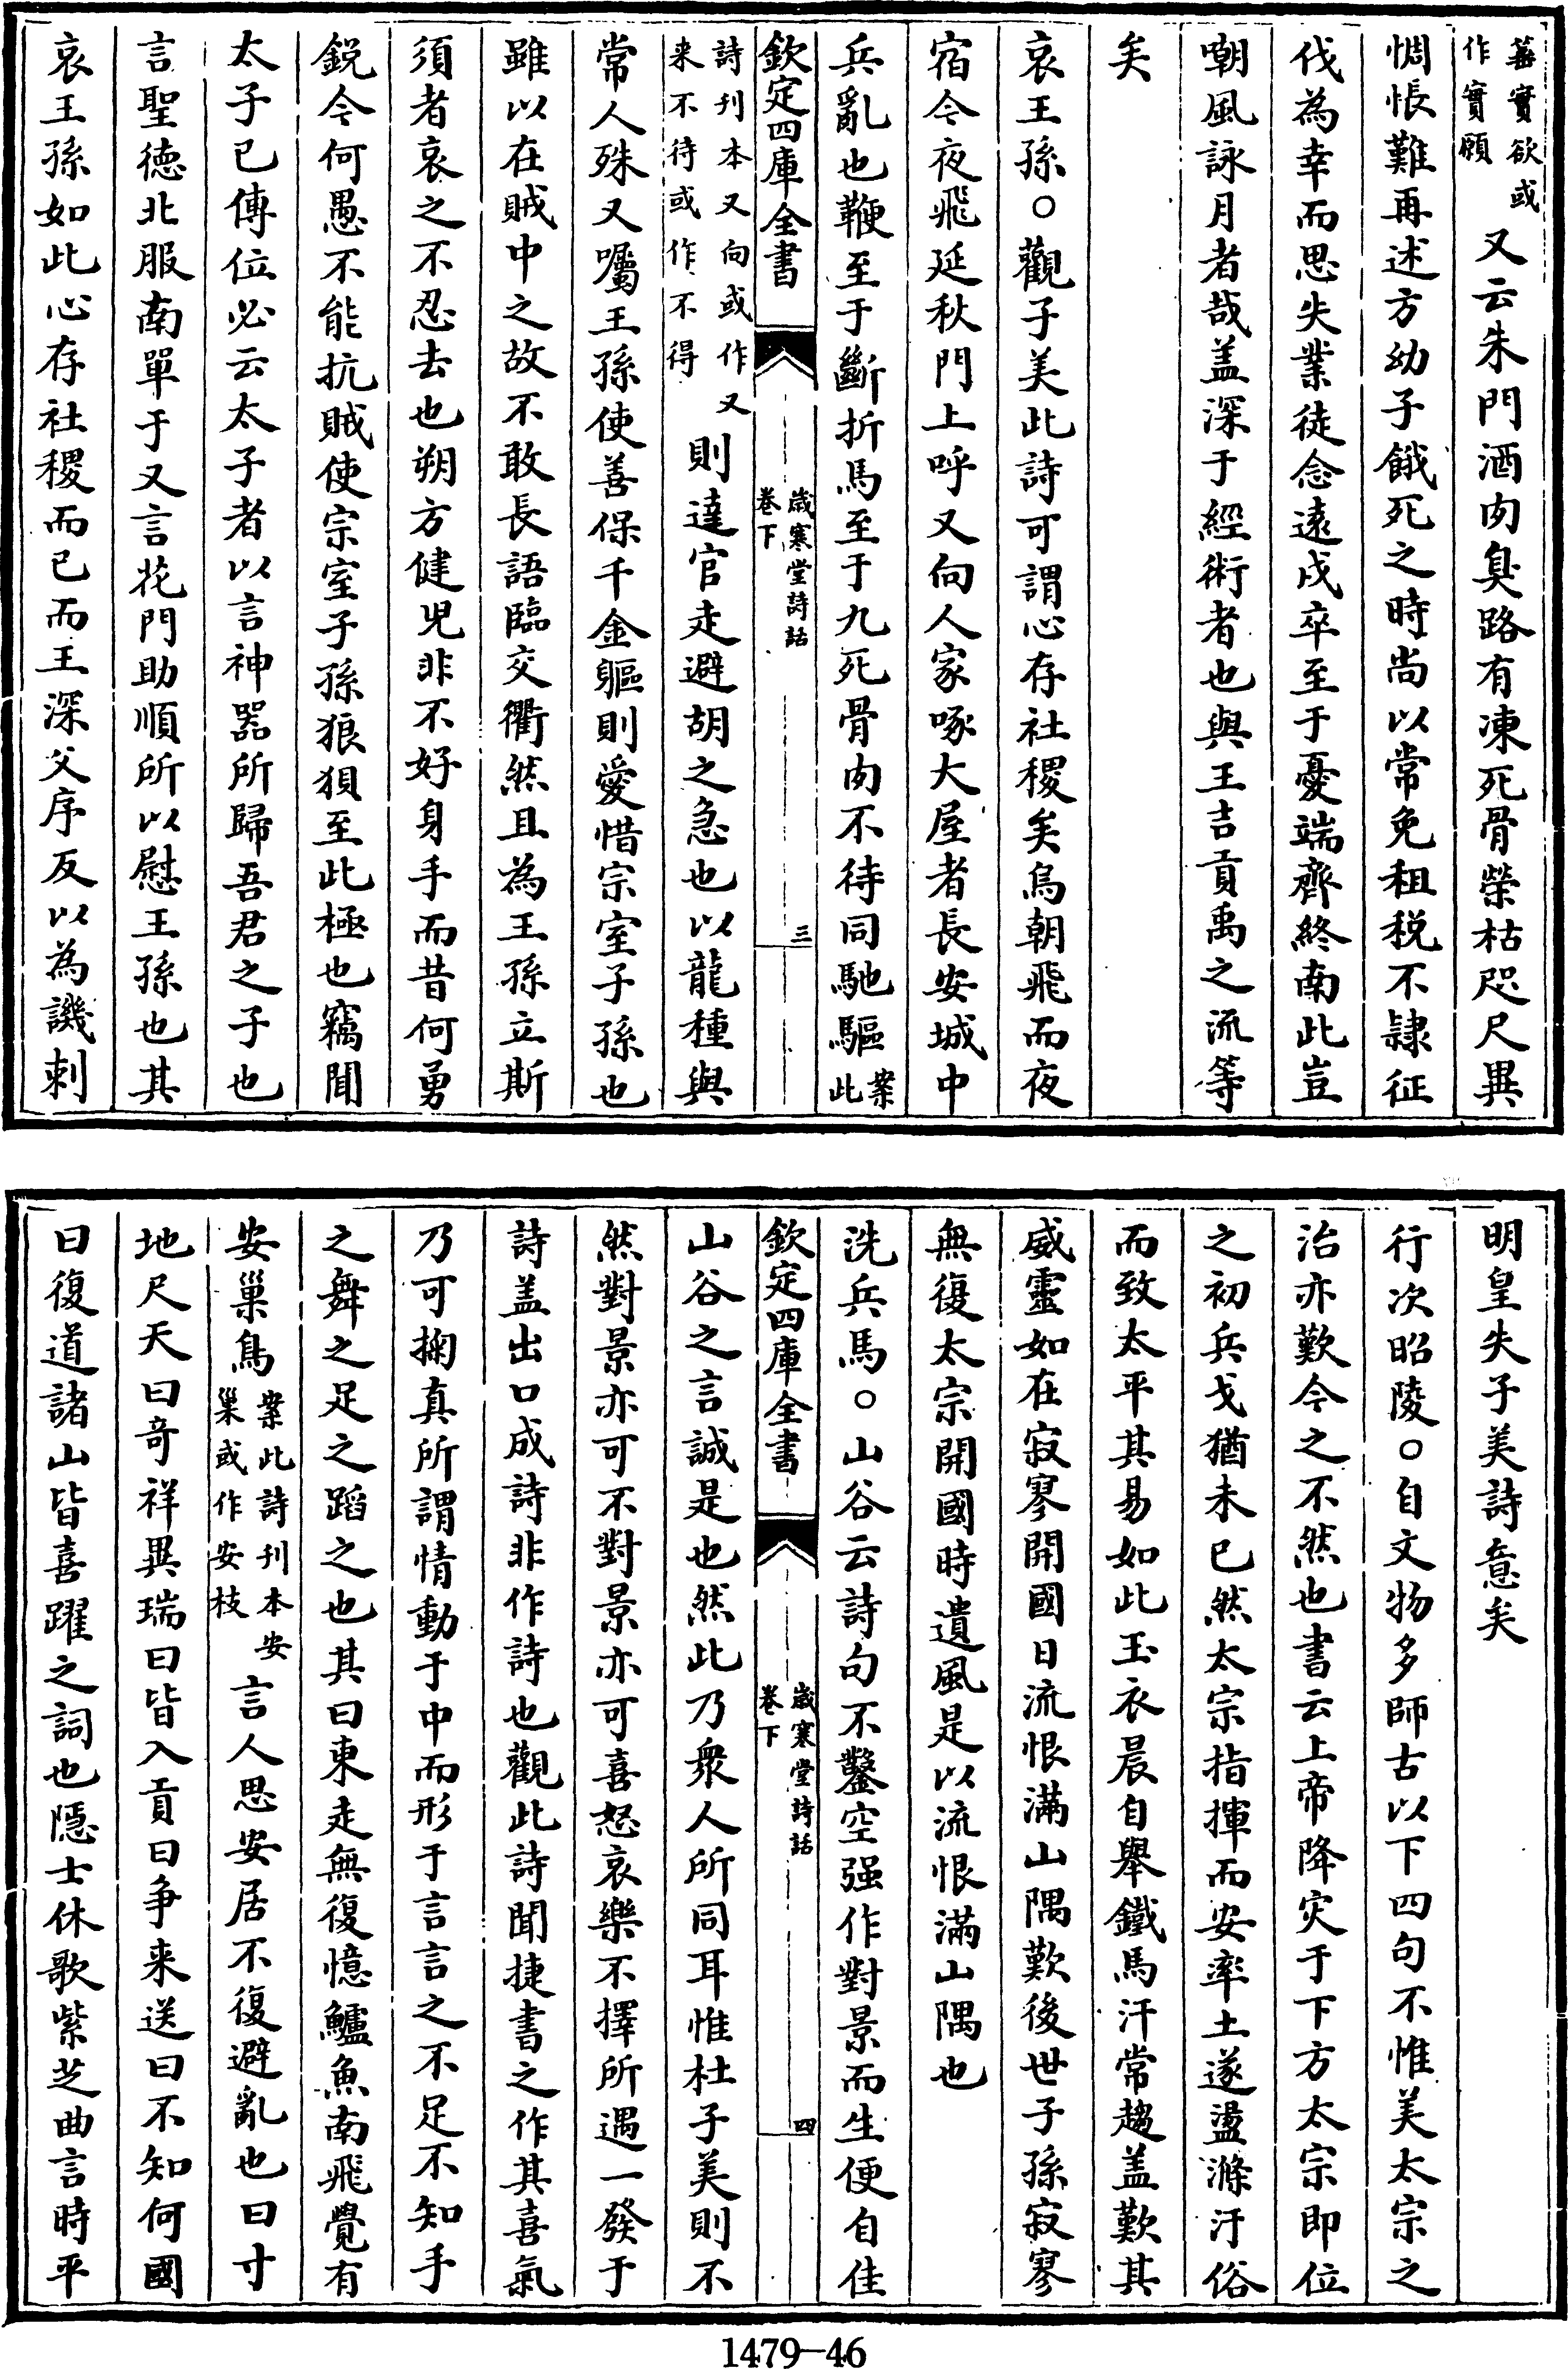 蕃實欲或
作實願
又云朱門酒肉臭路有凍死骨榮枯咫尺異
惆悵難再述方幼子餓死之時尚以常免租税不隸征
伐為幸而思失業徒念遠戍卒至于憂端齊終南此豈
嘲風詠月者哉盖深于經術者也與王吉貢禹之流等
矣
哀王孫○觀子美此詩可謂心存社稷矣烏朝飛而夜
宿今夜飛延秋門上呼又向人家啄大屋者長安城中
兵亂也鞭至于斷折馬至于九死骨肉不待同馳驅
案此
欽定四庫全書
歲寒堂詩話
卷下
三
詩刋本又向或作又
来不待或作不得
則達官走避胡之急也以龍種與
常人殊又囑王孫使善保千金軀則愛惜宗室子孫也
雖以在賊中之故不敢長語臨交衢然且為王孫立斯
須者哀之不忍去也朔方健兒非不好身手而昔何勇
鋭今何愚不能抗賊使宗室子孫狼狽至此極也竊聞
太子已傳位必云太子者以言神器所歸吾君之子也
言聖德北服南單于又言花門助順所以慰王孫也其
哀王孫如此心存社稷而已而王深父序反以為譏刺
明皇失子美詩意矣
行次昭陵○自文物多師古以下四句不惟美太宗之
治亦歎今之不然也書云上帝降灾于下方太宗即位
之初兵戈猶未已然太宗指揮而安率土遂盪滌汙俗
而致太平其易如此玉衣晨自舉鐵馬汗常趨盖歎其
威靈如在寂寥開國日流恨滿山隅歎後世子孫寂寥
無復太宗開國時遺風是以流恨滿山隅也
洗兵馬○山谷云詩句不鑿空强作對景而生便自佳
欽定四庫全書
歲寒堂詩話
卷下
四
山谷之言誠是也然此乃衆人所同耳惟杜子美則不
然對景亦可不對景亦可喜怒哀樂不擇所遇一發于
詩盖出口成詩非作詩也觀此詩聞捷書之作其喜氣
乃可掬真所謂情動于中而形于言言之不足不知手
之舞之足之蹈之也其曰東走無復憶鱸魚南飛覺有
安巢鳥
案此詩刋本安
巢或作安枝
言人思安居不復避亂也曰寸
地尺天曰竒祥異瑞曰皆入貢曰争来送曰不知何國
曰復道諸山皆喜躍之詞也隱士休歌紫芝曲言時平
1479-46